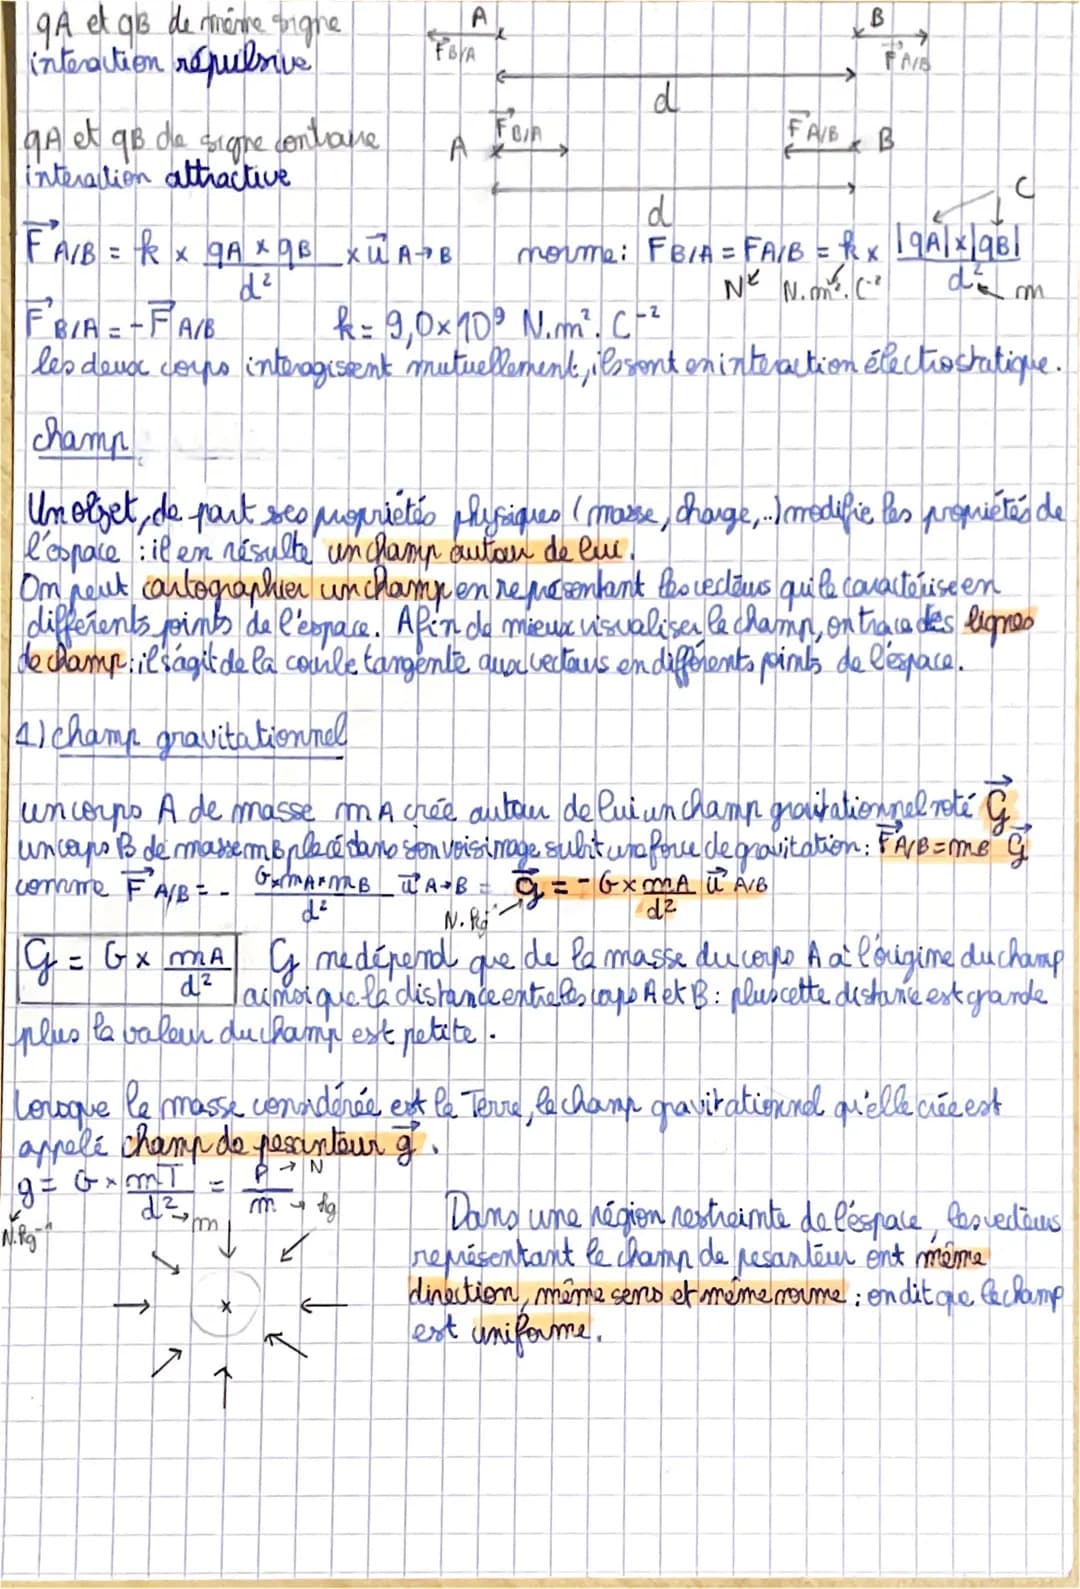 qA et qB de même signe
interaction répulsive
A B
F B/A F A/B
d
qA et qB de signe contraire
interaction attractive
A F B/A F A/B B
d
C
F A/B = k × qA × qB / d² × u A→B norme : F B/A = F A/B = k × |qA|×|qB| / d²
N N.m².C⁻² m
F B/A = - F A/B k = 9,0×10⁹ N.m².C⁻²
les deux corps interagissent mutuellement, ils sont en interaction électrostatique.
champ
Un objet, de part ses propriétés physiques (masse, charge,..) modifie les propriétés de
l'espace : il en résulte un champ autour de lui.
On peut cartographier un champ en représentant les vecteurs qui le caractérise en
différents points de l'espace. Afin de mieux visualiser le champ, on trace des lignes
de champ : il s'agit de la courbe tangente aux vecteurs en différents points de l'espace.
1) champ gravitationnel
un corps A de masse mA crée autour de lui un champ gravitationnel noté G
un corps B de masse mB placé dans son voisinage subit une force de gravitation : F A/B = mB G
comme F A/B = - G×mA×mB / d² u A→B = G = - G × mA / d² u A/B
N.kg⁻¹
G = G × mA / d² G ne dépend que de la masse du corps A à l'origine du champ
ainsi que la distance entre les corps A et B : plus cette distance est grande
plus la valeur du champ est petite.
Lorsque la masse considérée est la Terre, le champ gravitationnel qu'elle crée est
appelé champ de pesanteur g.
g = G × mT / d² = P / m
N.kg⁻¹ m N kg
Dans une région restreinte de l'espace, les vecteurs
représentant le champ de pesanteur ont même
direction, même sens et même norme ; on dit que le champ
est uniforme.